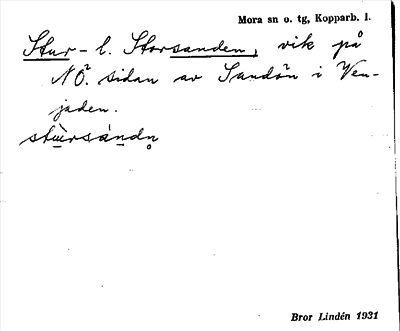 Mora sn o. tg, Kopparb. l.
Stur- l. Storsanden, vik på
NÖ. sidan av Sandön i Ven-
jaden.
stùrsándn̥
Bror Lindén 1931